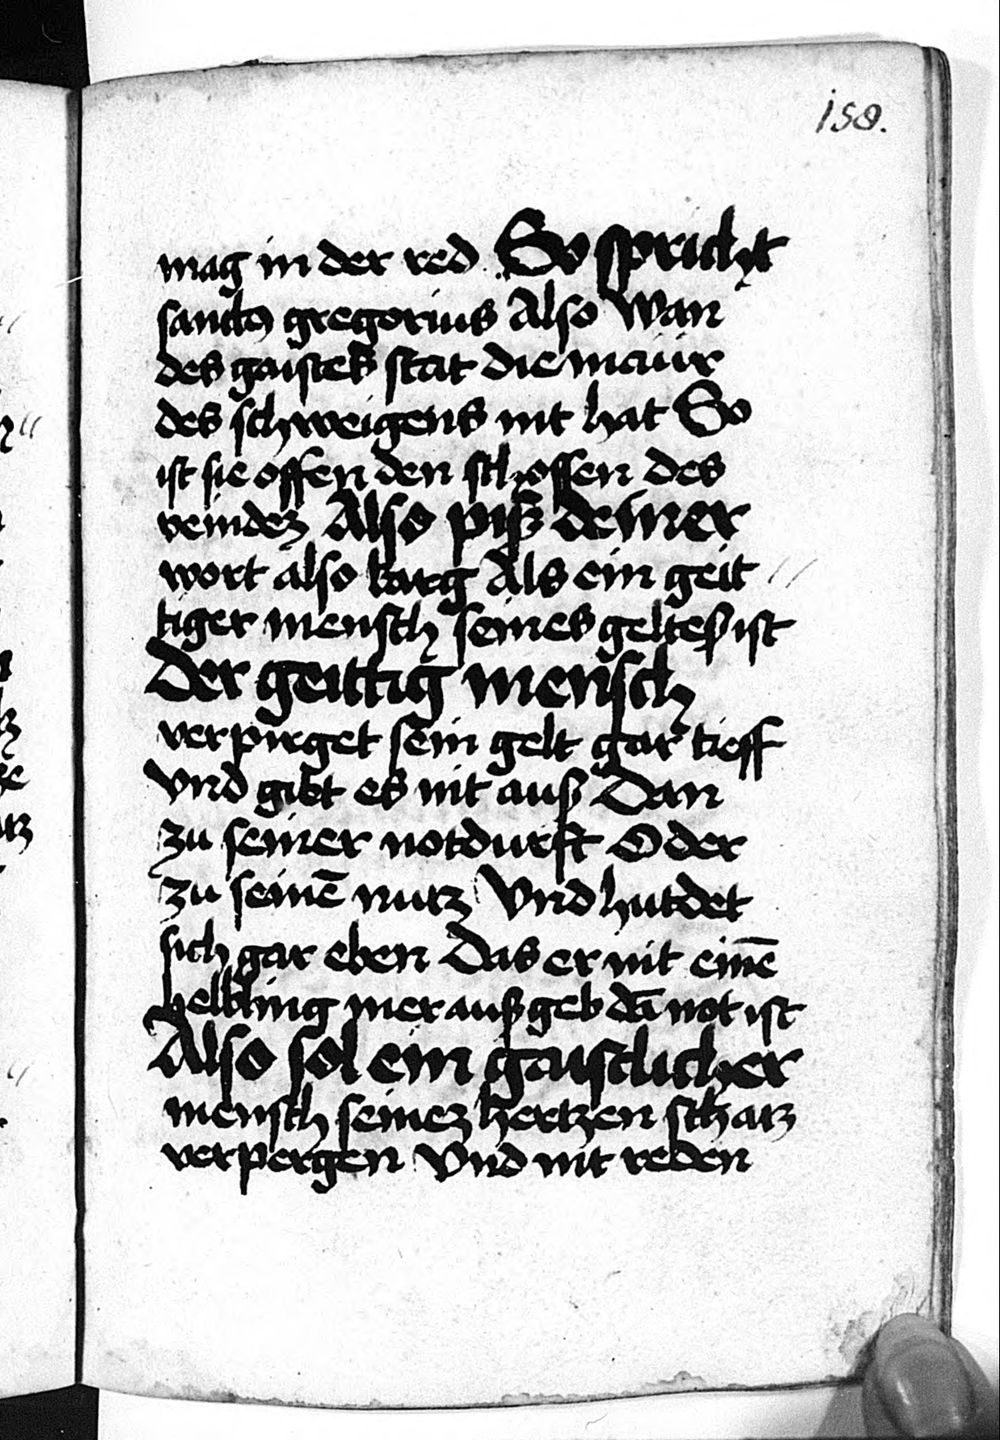 158.
mag in der red So spricht
sanctus gregorius Also Wan
des gaistes stat die maur
des schweigens nit hat So
ist sie offen den schossen des
veindez Also piß deiner
wort also karg Als ein geit //
tiger mensch seines geltes ist
Der geittig mensch
verpirget sein gelt gar tieff
Vnd gibt es nit auß Dan
zu seiner notdurft Oder
zu seinē nutz Vnd hutdet
sich gar eben Das er nit einē
helbling mer außgeb dā not ist
Also sol ein gaistlicher
mensch seinez hertzen schatz
verpergen Vnd nit reden